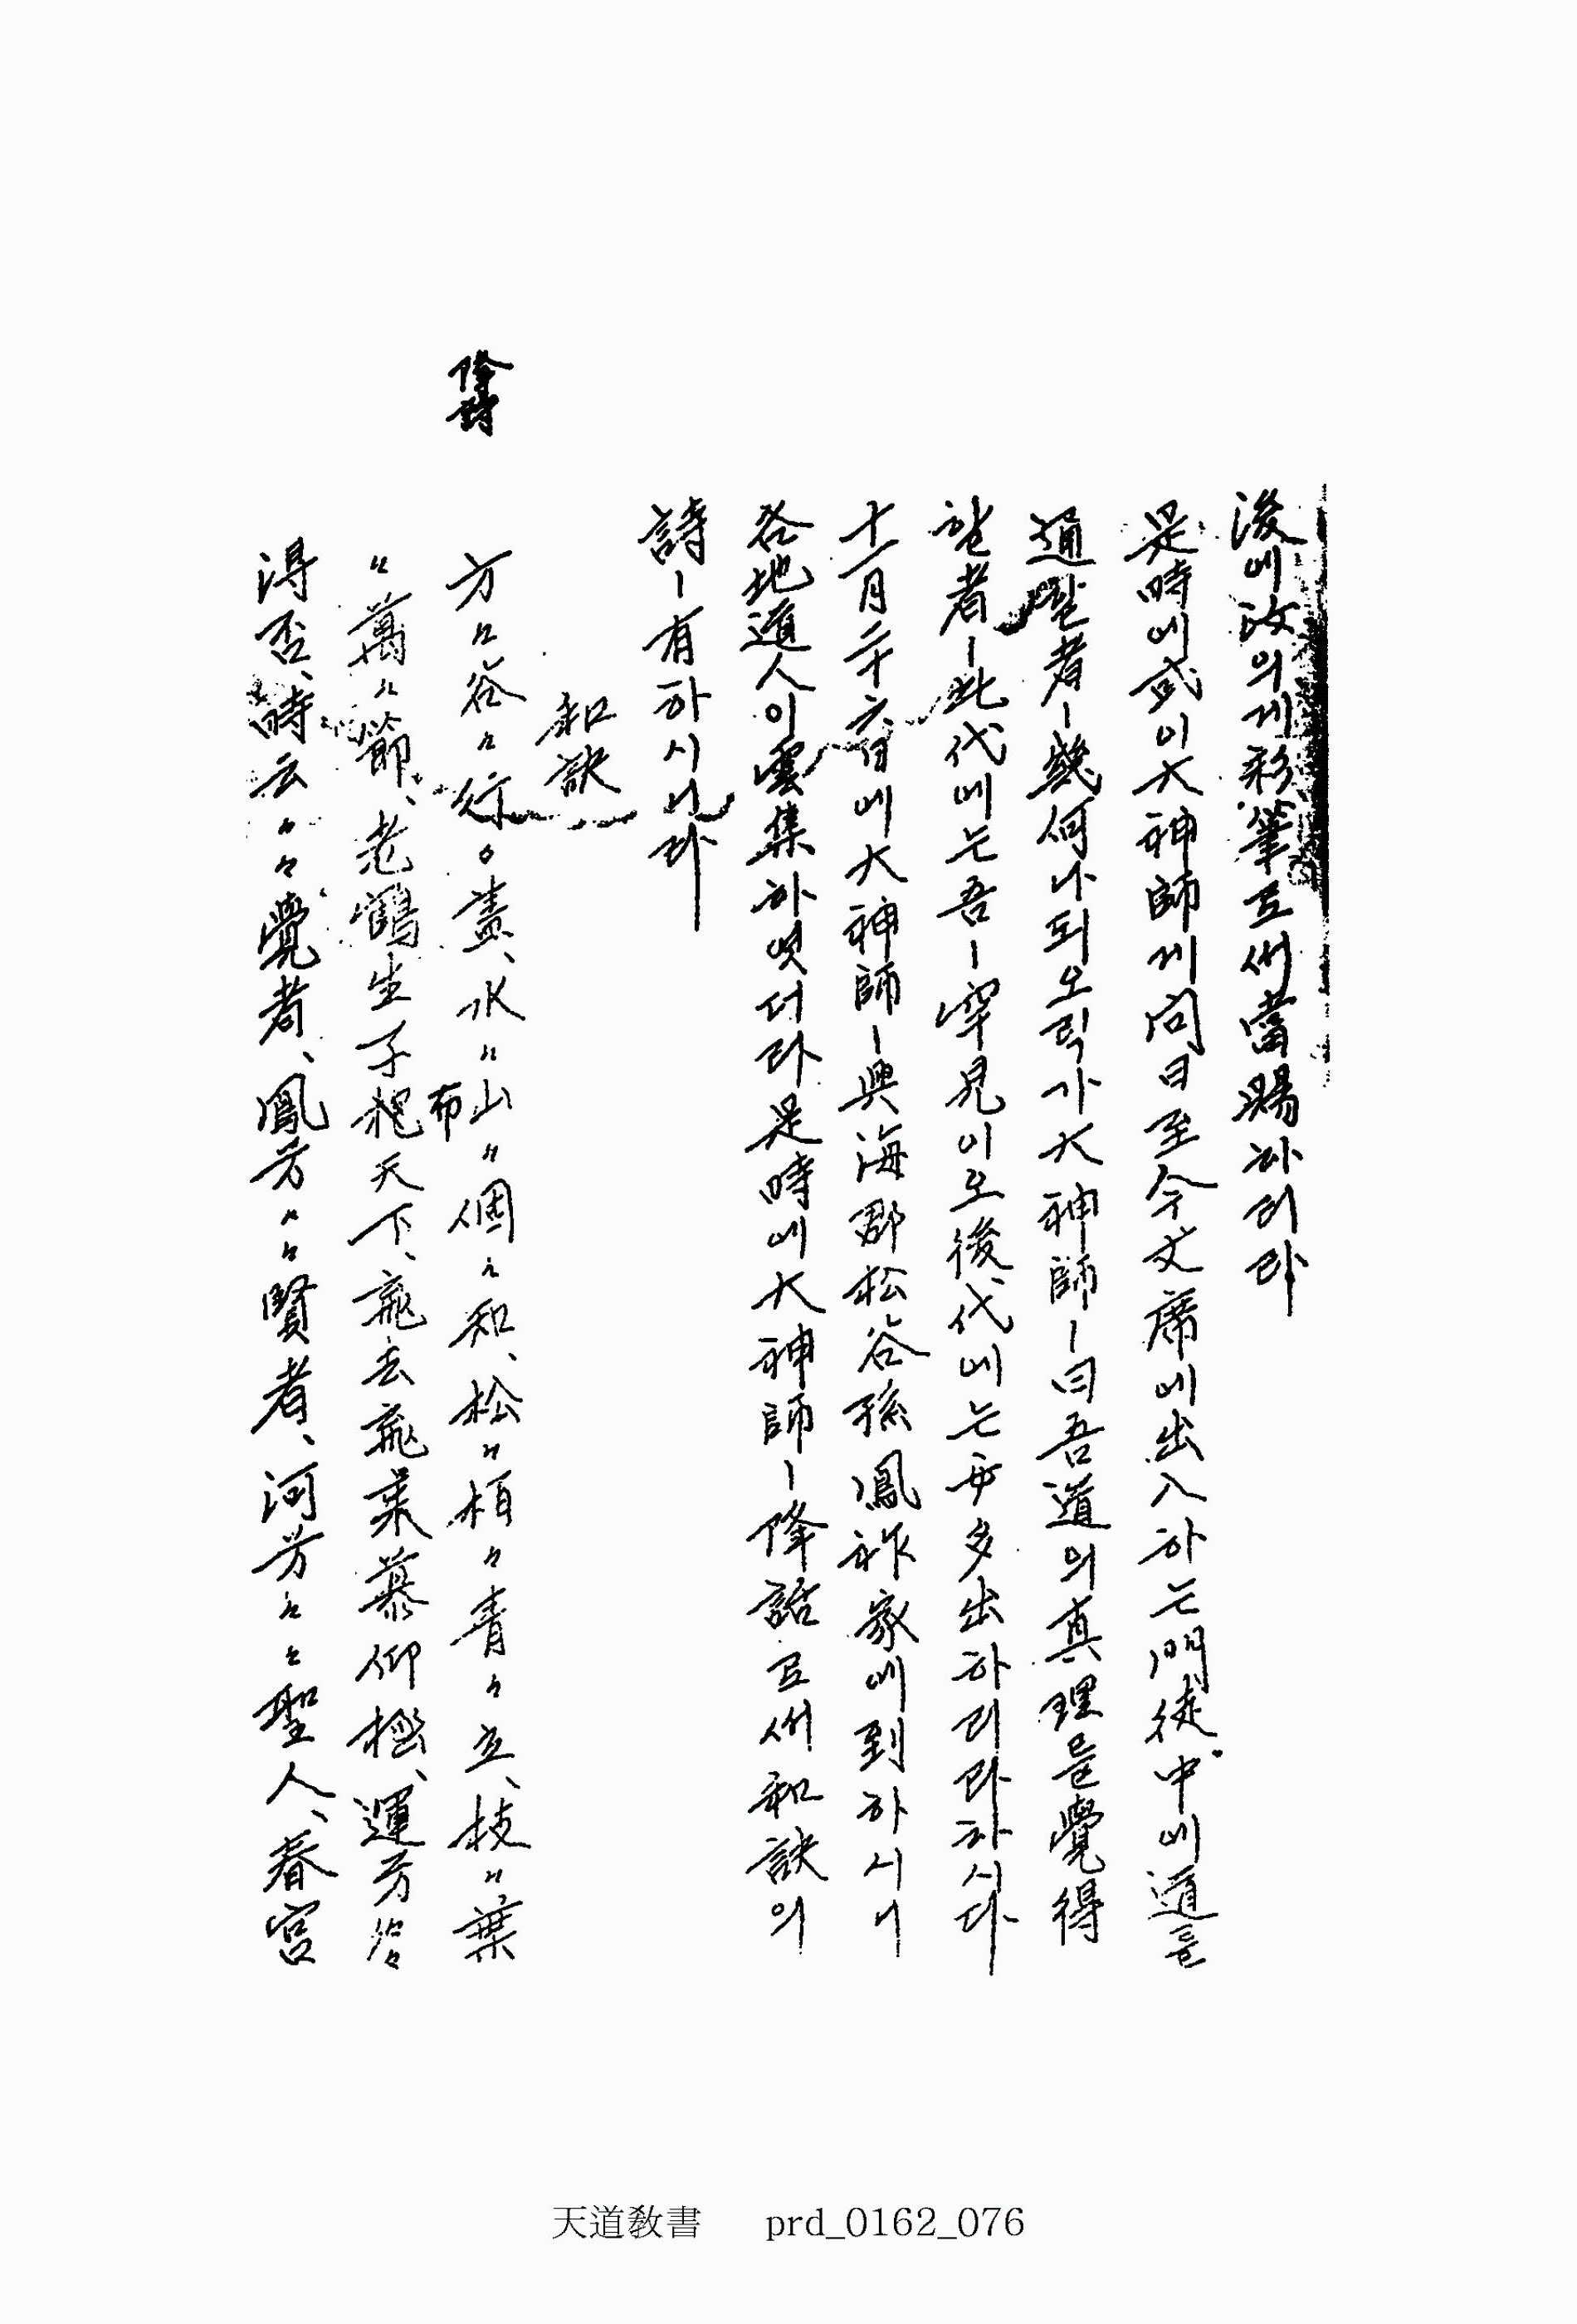 後에汝의게彩筆로써當賜하리라
是時에或이大神師게問曰至今文席에出入하는門徒中에道를
通할者ㅣ幾何나되오릿가大神師ㅣ曰吾道의真理를覺得
할者ㅣ此代에는吾ㅣ罕見이오後代에는每多出하리라하시다
十一月二十六日에大神師ㅣ興海郡松谷孫鳳祚家에到하시니
各地道人이雲集하엿더라是時에大神師ㅣ降話로써和訣의
詩ㅣ有하시니라
和訣
降詩
方々谷々行々盡、水〃山〃個々知、松〃栢々青々立、枝〃葉
〃萬々節、老鶴生子布天下、飛去飛來慕仰極、運兮々々
得否、時云々々覺者、鳳兮々々賢者、河兮々々聖人、春宮
天道敎書 prd_0162_076